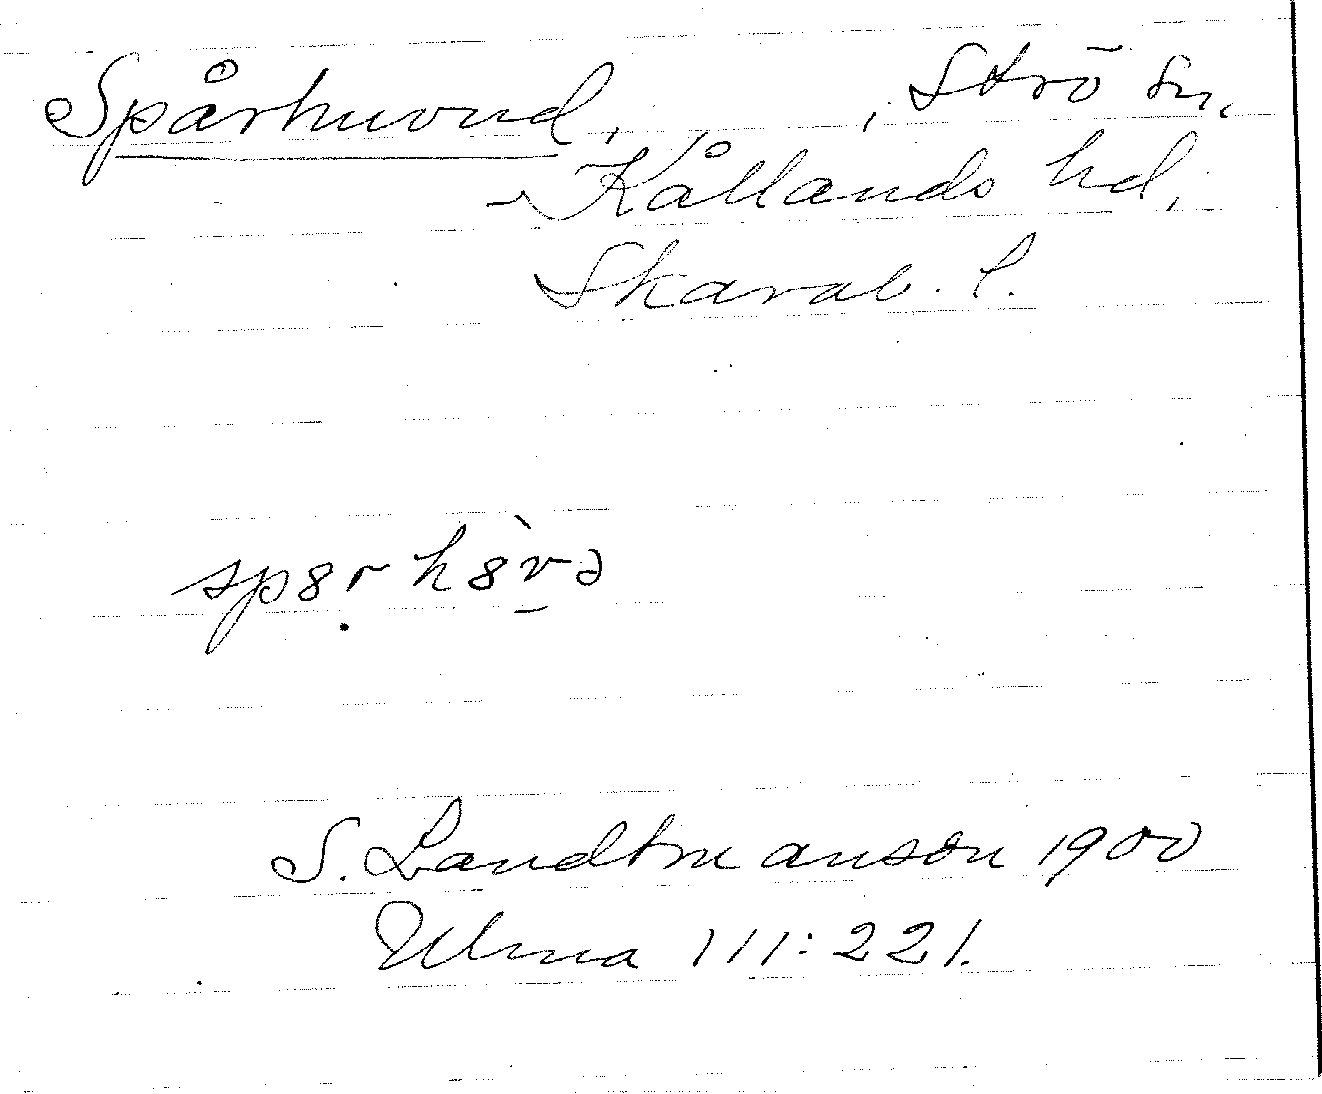 Spårhuvud, , Strö sn,
Kållands hd,
Skarab. l.
S. Landtmanson 1900
Ulma 111:221.